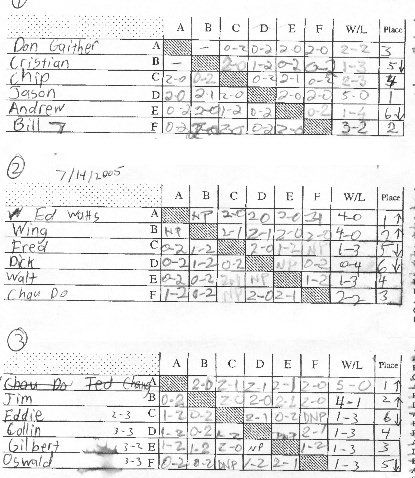 ①
A B C D E F W/L Place
Don Gaither A - 0-2 0-2 2-0 2-0 2-2 3
Cristian B - 2-0 1-2 0-2 1-3 5↓
Chip C 2-0 0-2 0-2 2-1 0-2 2-3 4
Jason D 2-0 2-1 2-0 2-0 2-0 5-0 1
Andrew E 0-2 2-0 1-2 0-2 0-2 1-4 6↓
Bill F 0-2 0-2 3-2 2
②
7/14/2005
A B C D E F W/L Place
Ed Watts A NP 2-0 2-0 2-0 4-0 1↑
Wing B NP 2-1 2-1 2-0 2-0 4-0 2↑
Fred C 0-2 1-2 2-0 1-2 NP 1-3 5↓
Dick D 0-2 1-2 0-2 NP 0-2 0-4 6↓
Walt E 0-2 0-2 NP 1-2 1-3 4
Chau Do F 1-2 0-2 NP 2-0 2-1 2-2 3
③
A B C D E F W/L Place
Chau Do Ted Chang A 2-0 2-1 2-1 2-1 2-0 5-0 1↑
Jim B 0-2 2-0 2-0 2-1 2-0 4-1 2↑
Eddie 2-3 C 1-2 0-2 2-1 0-2 DNP 1-3 6↓
Collin 3-3 D 1-2 0-2 1-2 2-1 1-3 4
Gilbert 3-2 E 1-2 1-2 2-0 NP 1-2 1-3 3
Oswald 3-3 F 0-2 0-2 DNP 1-2 2-1 1-3 5↓